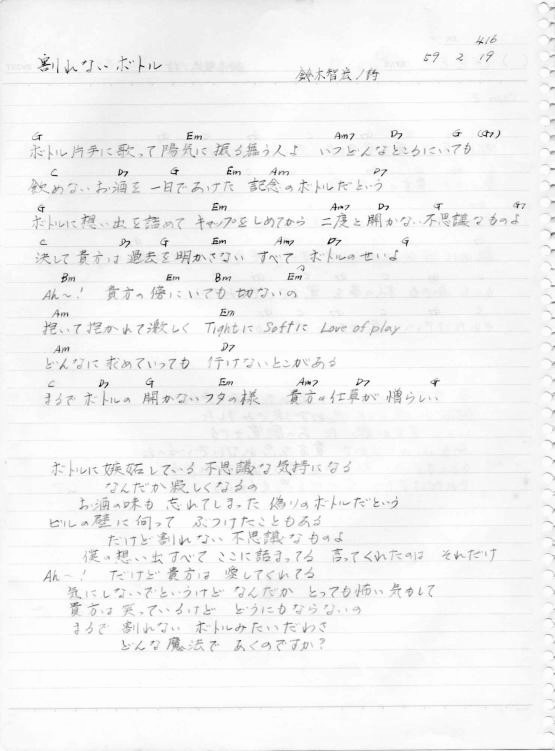 416
割れないボトル
59 2 19
鈴木智 / 詩
G Em Am7 D7 G (G7)
ボトル片手に歌って陽気に振る舞う人よ いつどんなところにいても
C D7 G Em Am D7
飲めないお酒を一日であけた 記念のボトルだという
G Em Am7 D7 G G7
ボトルに想い出を詰めて キャップをしめてから 二度と開かない不思議なものよ
C D7 G Em Am7 D7 G
決して貴方は過去を明かさない すべて ボトルのせいよ
Bm Em Bm Em
Ah〜! 貴方の傍にいても切ないの
Am Em
抱いて抱かれて激しく Tightに Softに Love of play
Am D7
どんなに求めていっても 行けないとこがある
C D7 G Em Am7 D7 G
まるで ボトルの 開かないフタの様 貴方の仕草が 憎らしい
ボトルに嫉妬している 不思議な気持になる
なんだか寂しくなるの
お酒の味も 忘れてしまった 偽りのボトルだという
ビルの壁に向って ぶつけたこともある
だけど割れない 不思議なものよ
僕の想い出すべて ここに詰まってる 言ってくれたのは それだけ
Ah〜! だけど貴方は 愛してくれてる
気にしないでというけど なんだか とっても怖い気もして
貴方は笑っているけど どうにもならないの
まるで 割れない ボトルみたいだわさ
どんな魔法で あくのですか?